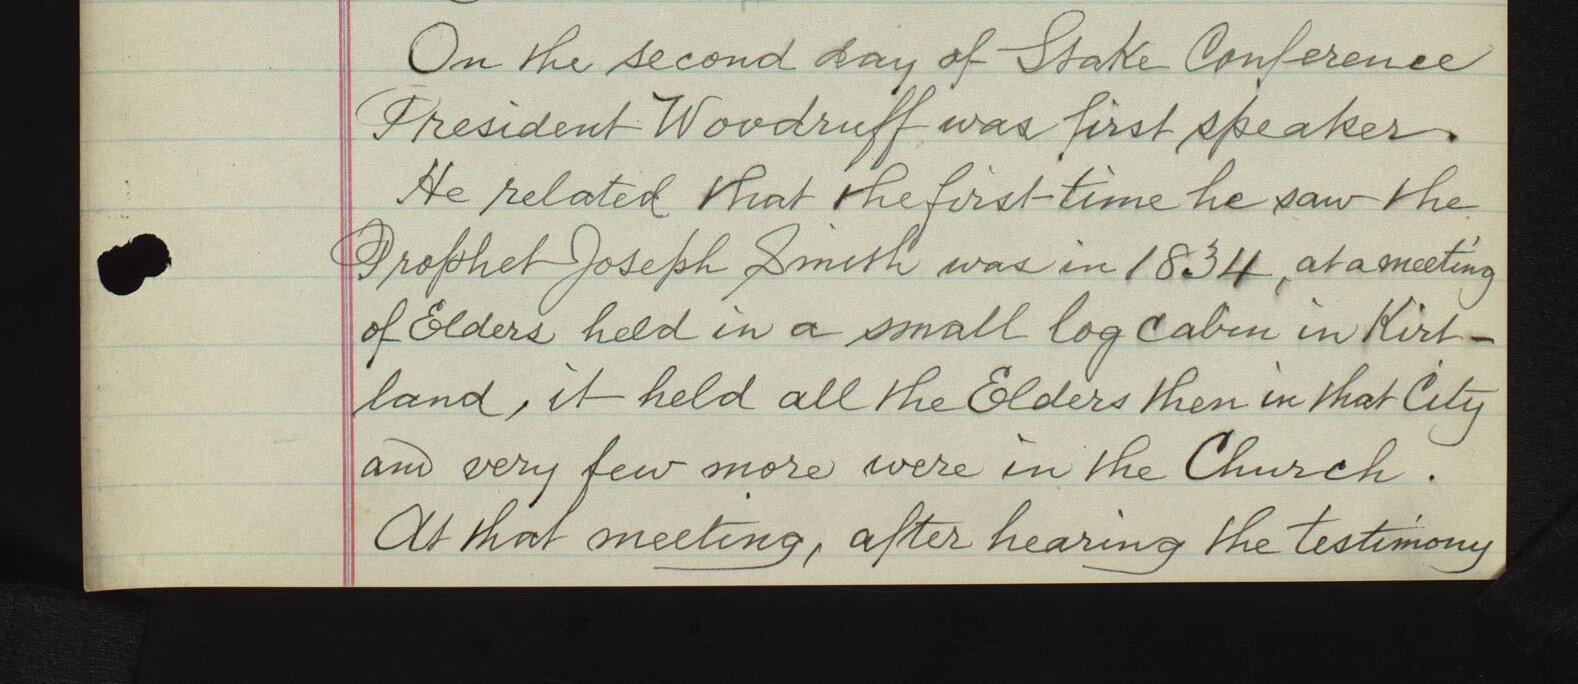 On the second day of Stake Conference
President Woodruff was first speaker.
He related that the first time he saw the
Prophet Joseph Smith was in 1834, at a meeting
of Elders held in a small log cabin in Kirt-
land, it held all the Elders then in that City
and very few more were in the Church.
At that meeting, after hearing the testimony